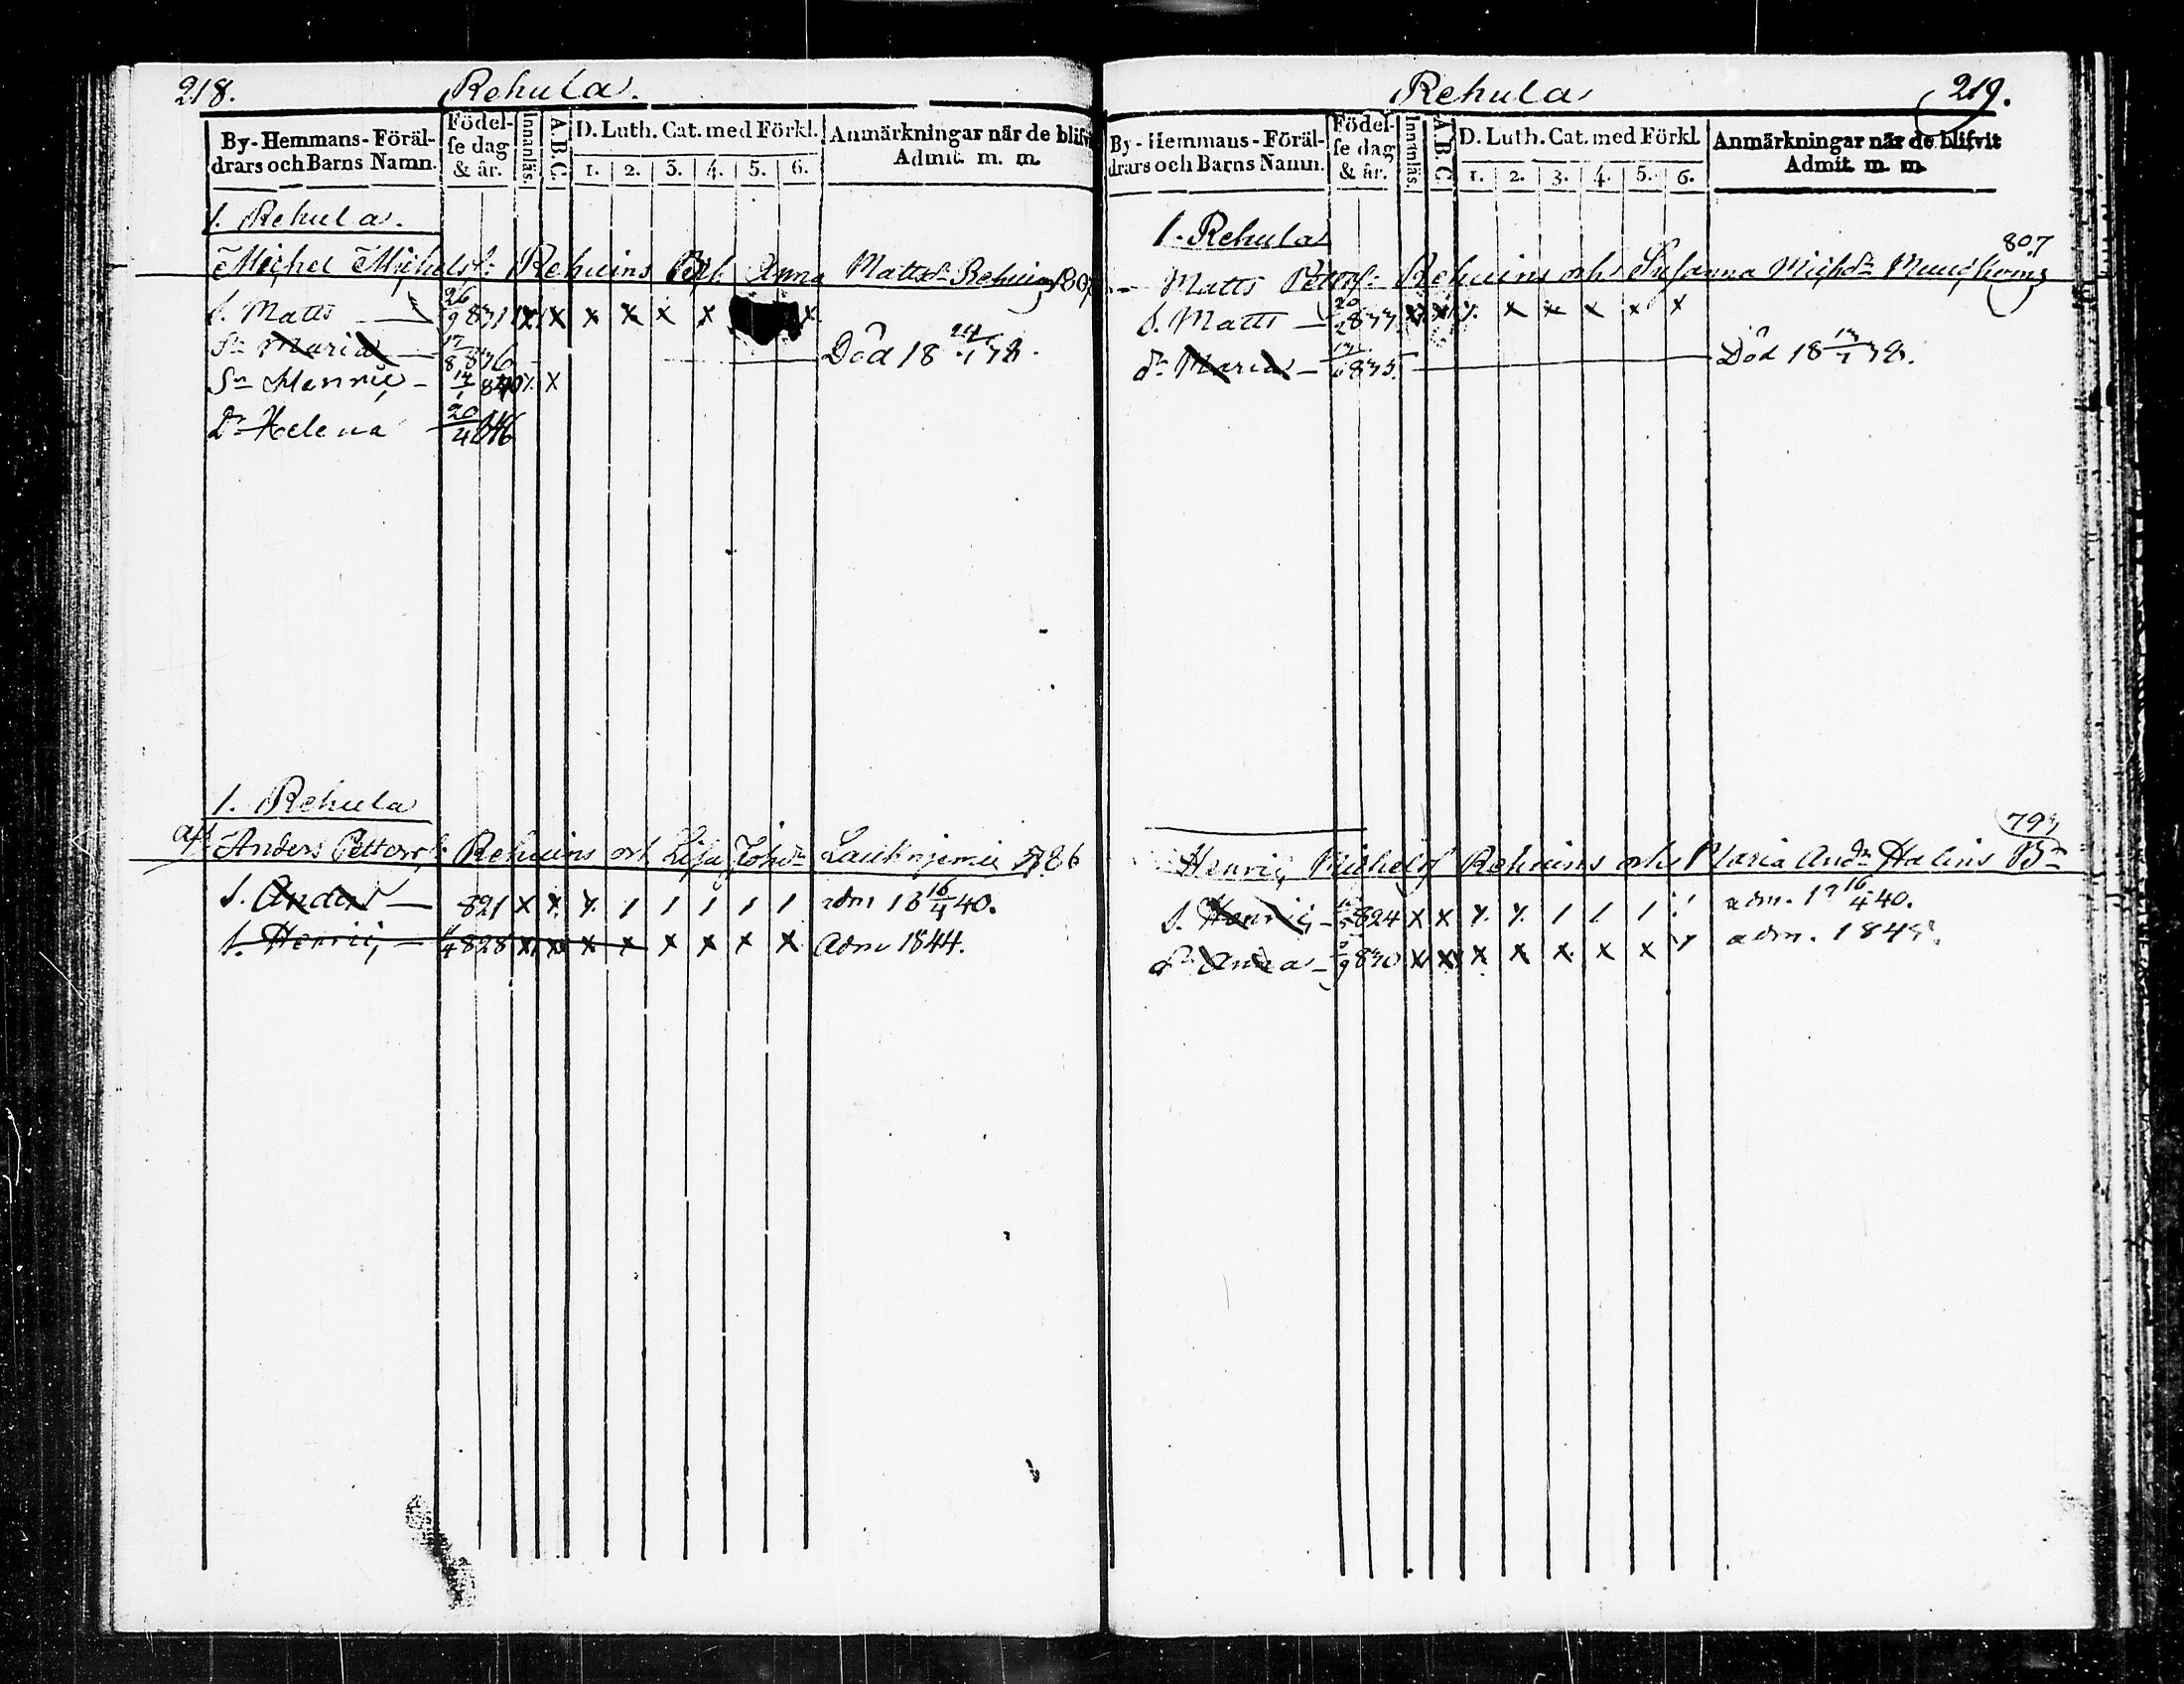 218. Rehula.
By-Hemmans-Föräldrars och Barns Namn. Födelse dag & år. Innanläs. A.B.C. D. Luth. Cat. med Förkl. 1. 2. 3. 4. 5. 6. Anmärkningar när de blifvi Admit. m. m.
1. Rehula.
Michel Michelss: Rehuins Anna Mattsdr Rehuins
S. Matts — 26/9 831 x x x x x x x
Maria — 17/8 836 — Död 18 24/1 38.
Sn Henric, - 14/1 840 x x
Dr Helena 20/4 46
1. Rehula
Anders Petterss: Rehuins och Lisa Johdr 786
S. Anders — 821 x x x 1 1 1 1 1 adm 18 16/4 40.
S. Henric, — 828 x x x x x x x x Adm 1844.
Rehula 219.
By-Hemmans-Föräldrars och Barns Namn. Födelse dag & år. Innanläs. A.B.C. D. Luth. Cat. med Förkl. 1. 2. 3. 4. 5. 6. Anmärkningar när de blifvit Admit. m. m.
1. Rehula
807
Matts Petterss: Rehuins och Susanna Michdr
S. Matts — 20/2 833 x x x x x x x x
dr Maria — 835. — Död 18 38.
793
Henric, Michelss Rehuins och Maria Andr Halins
S. Henric, — 824 x x x x 1 1 1 1 adm. 18 16/4 40.
dr Anna — 830 x x x x x x x x adm. 184